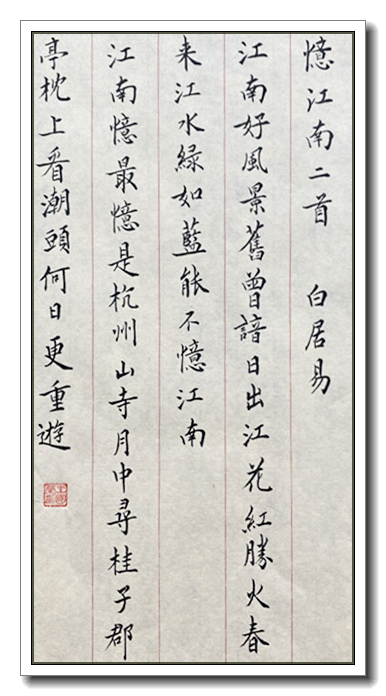 憶江南二首 白居易
江南好風景舊曾諳日出江花紅勝火春
来江水緑如藍能不憶江南
江南憶最憶是杭州山寺月中尋桂子郡
亭枕上看潮頭何日更重遊